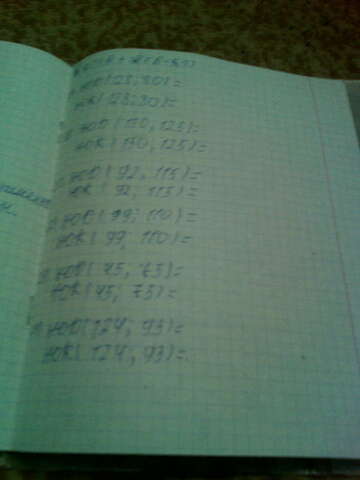 НОД(128; 80)=
НОК(128; 80)=
НОД(150, 125)=
НОК(150, 125)=
НОД(92, 115)=
НОК(92, 115)=
НОД(99; 110)=
НОК(99; 110)=
НОД(45, 75)=
НОК(45; 75)=
НОД(124; 93)=
НОК(124; 93)=